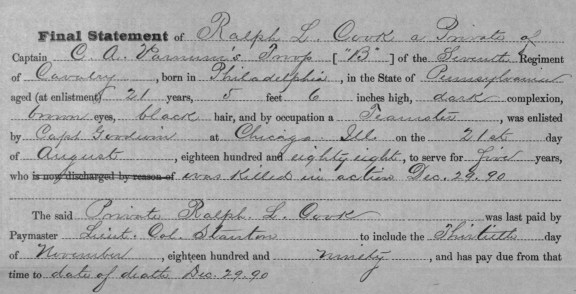 Final Statement of Ralph L. Cook a Private of
Captain C. A. Varnum's Troop ["B"] of the Seventh Regiment
of Cavalry, born in Philadelphia, in the State of Pennsylvania
aged (at enlistment) 21 years, 5 feet 6 inches high, dark complexion,
brown eyes, black hair, and by occupation a Teamster, was enlisted
by Capt Goodwin at Chicago Ill on the 21st day
of August, eighteen hundred and eighty eight, to serve for five years,
who is now discharged by reason of was killed in action Dec. 29. 90
The said Private Ralph L. Cook was last paid by
Paymaster Lieut. Col. Stanton to include the Thirtieth day
of November, eighteen hundred and ninety, and has pay due from that
time to date of death Dec. 29. 90